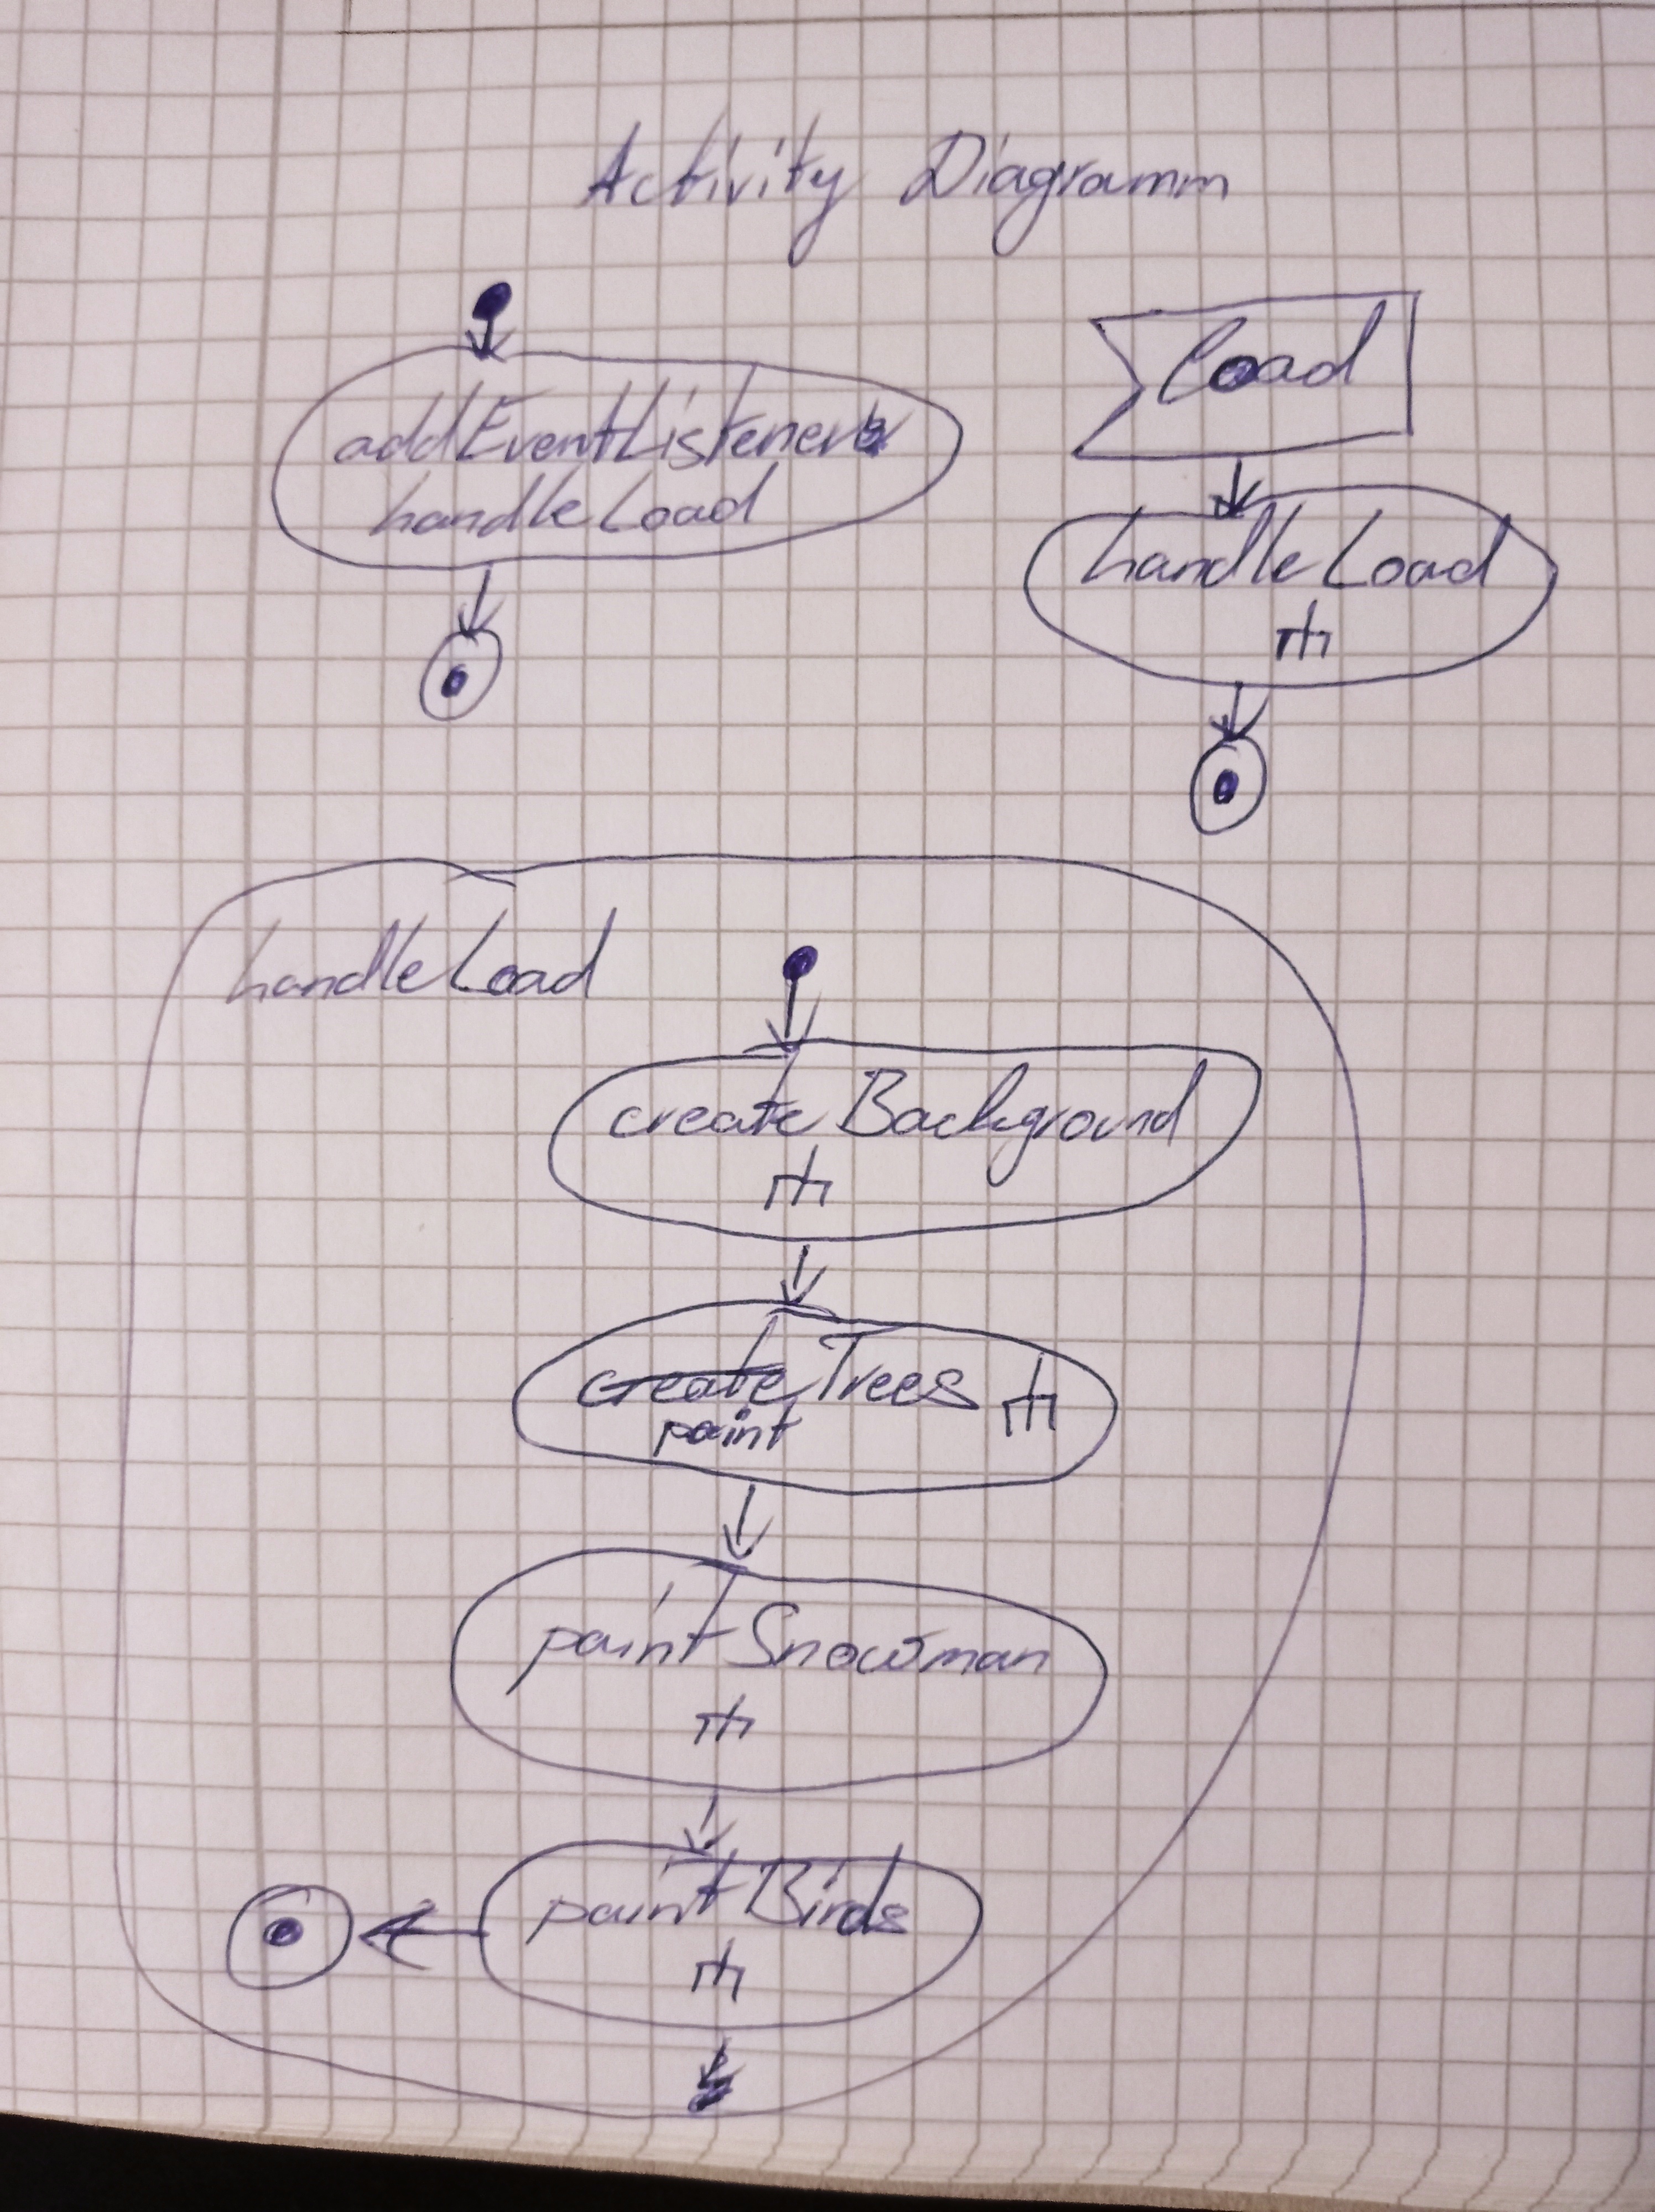 Activity Diagramm
addEventListener
handleLoad
load
handleLoad
handleLoad
createBackground
create Trees
paint
paintSnowman
paintBirds